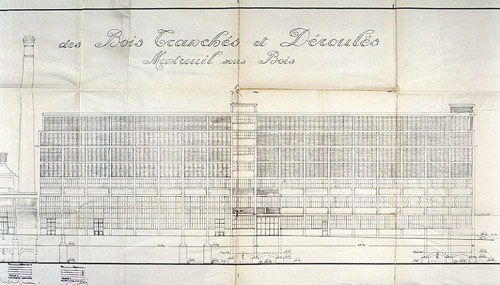 des Bois Tranchés et Déroulés
Montreuil sous Bois